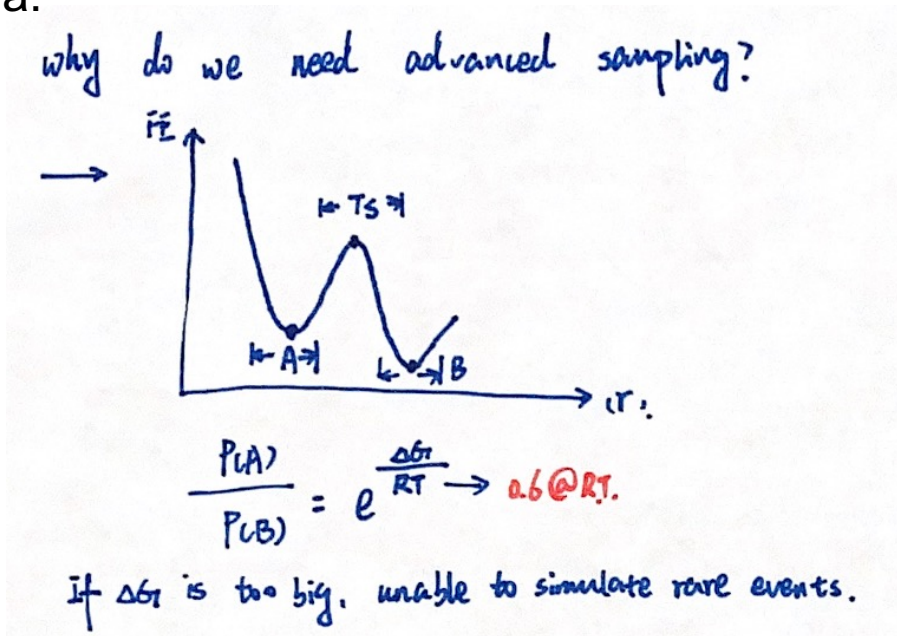 a.
why do we need advanced sampling?
E
TS
A
B
r.
P(A)
P(B)
= e
ΔG
RT → 0.6 @RT.
If ΔG is too big. unable to simulate rare events.